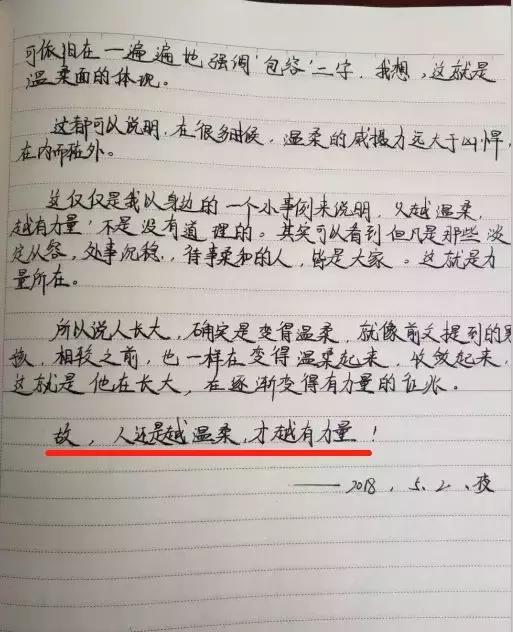 可依旧在一遍遍地强调‘包容’二字，我想，这就是
温柔面的体现。
这都可以说明，在很多时候，温柔的威摄力远大于凶悍，
在内而社外。
这仅仅是我以身边的一个小事例来说明，‘人越温柔，
越有力量’不是没有道理的。其实可以看到但凡是那些淡
定从容，处事沉稳，待事柔和的人，皆是大家。这就是力
量所在。
所以说人长大，确实是变得温柔，就像前文提到的男
孩，相较之前，也一样在变得温柔起来，收敛起来，
这就是他在长大，在逐渐变得有力量的征兆。
故，人还是越温柔，才越有力量！
——2018．5．2．夜